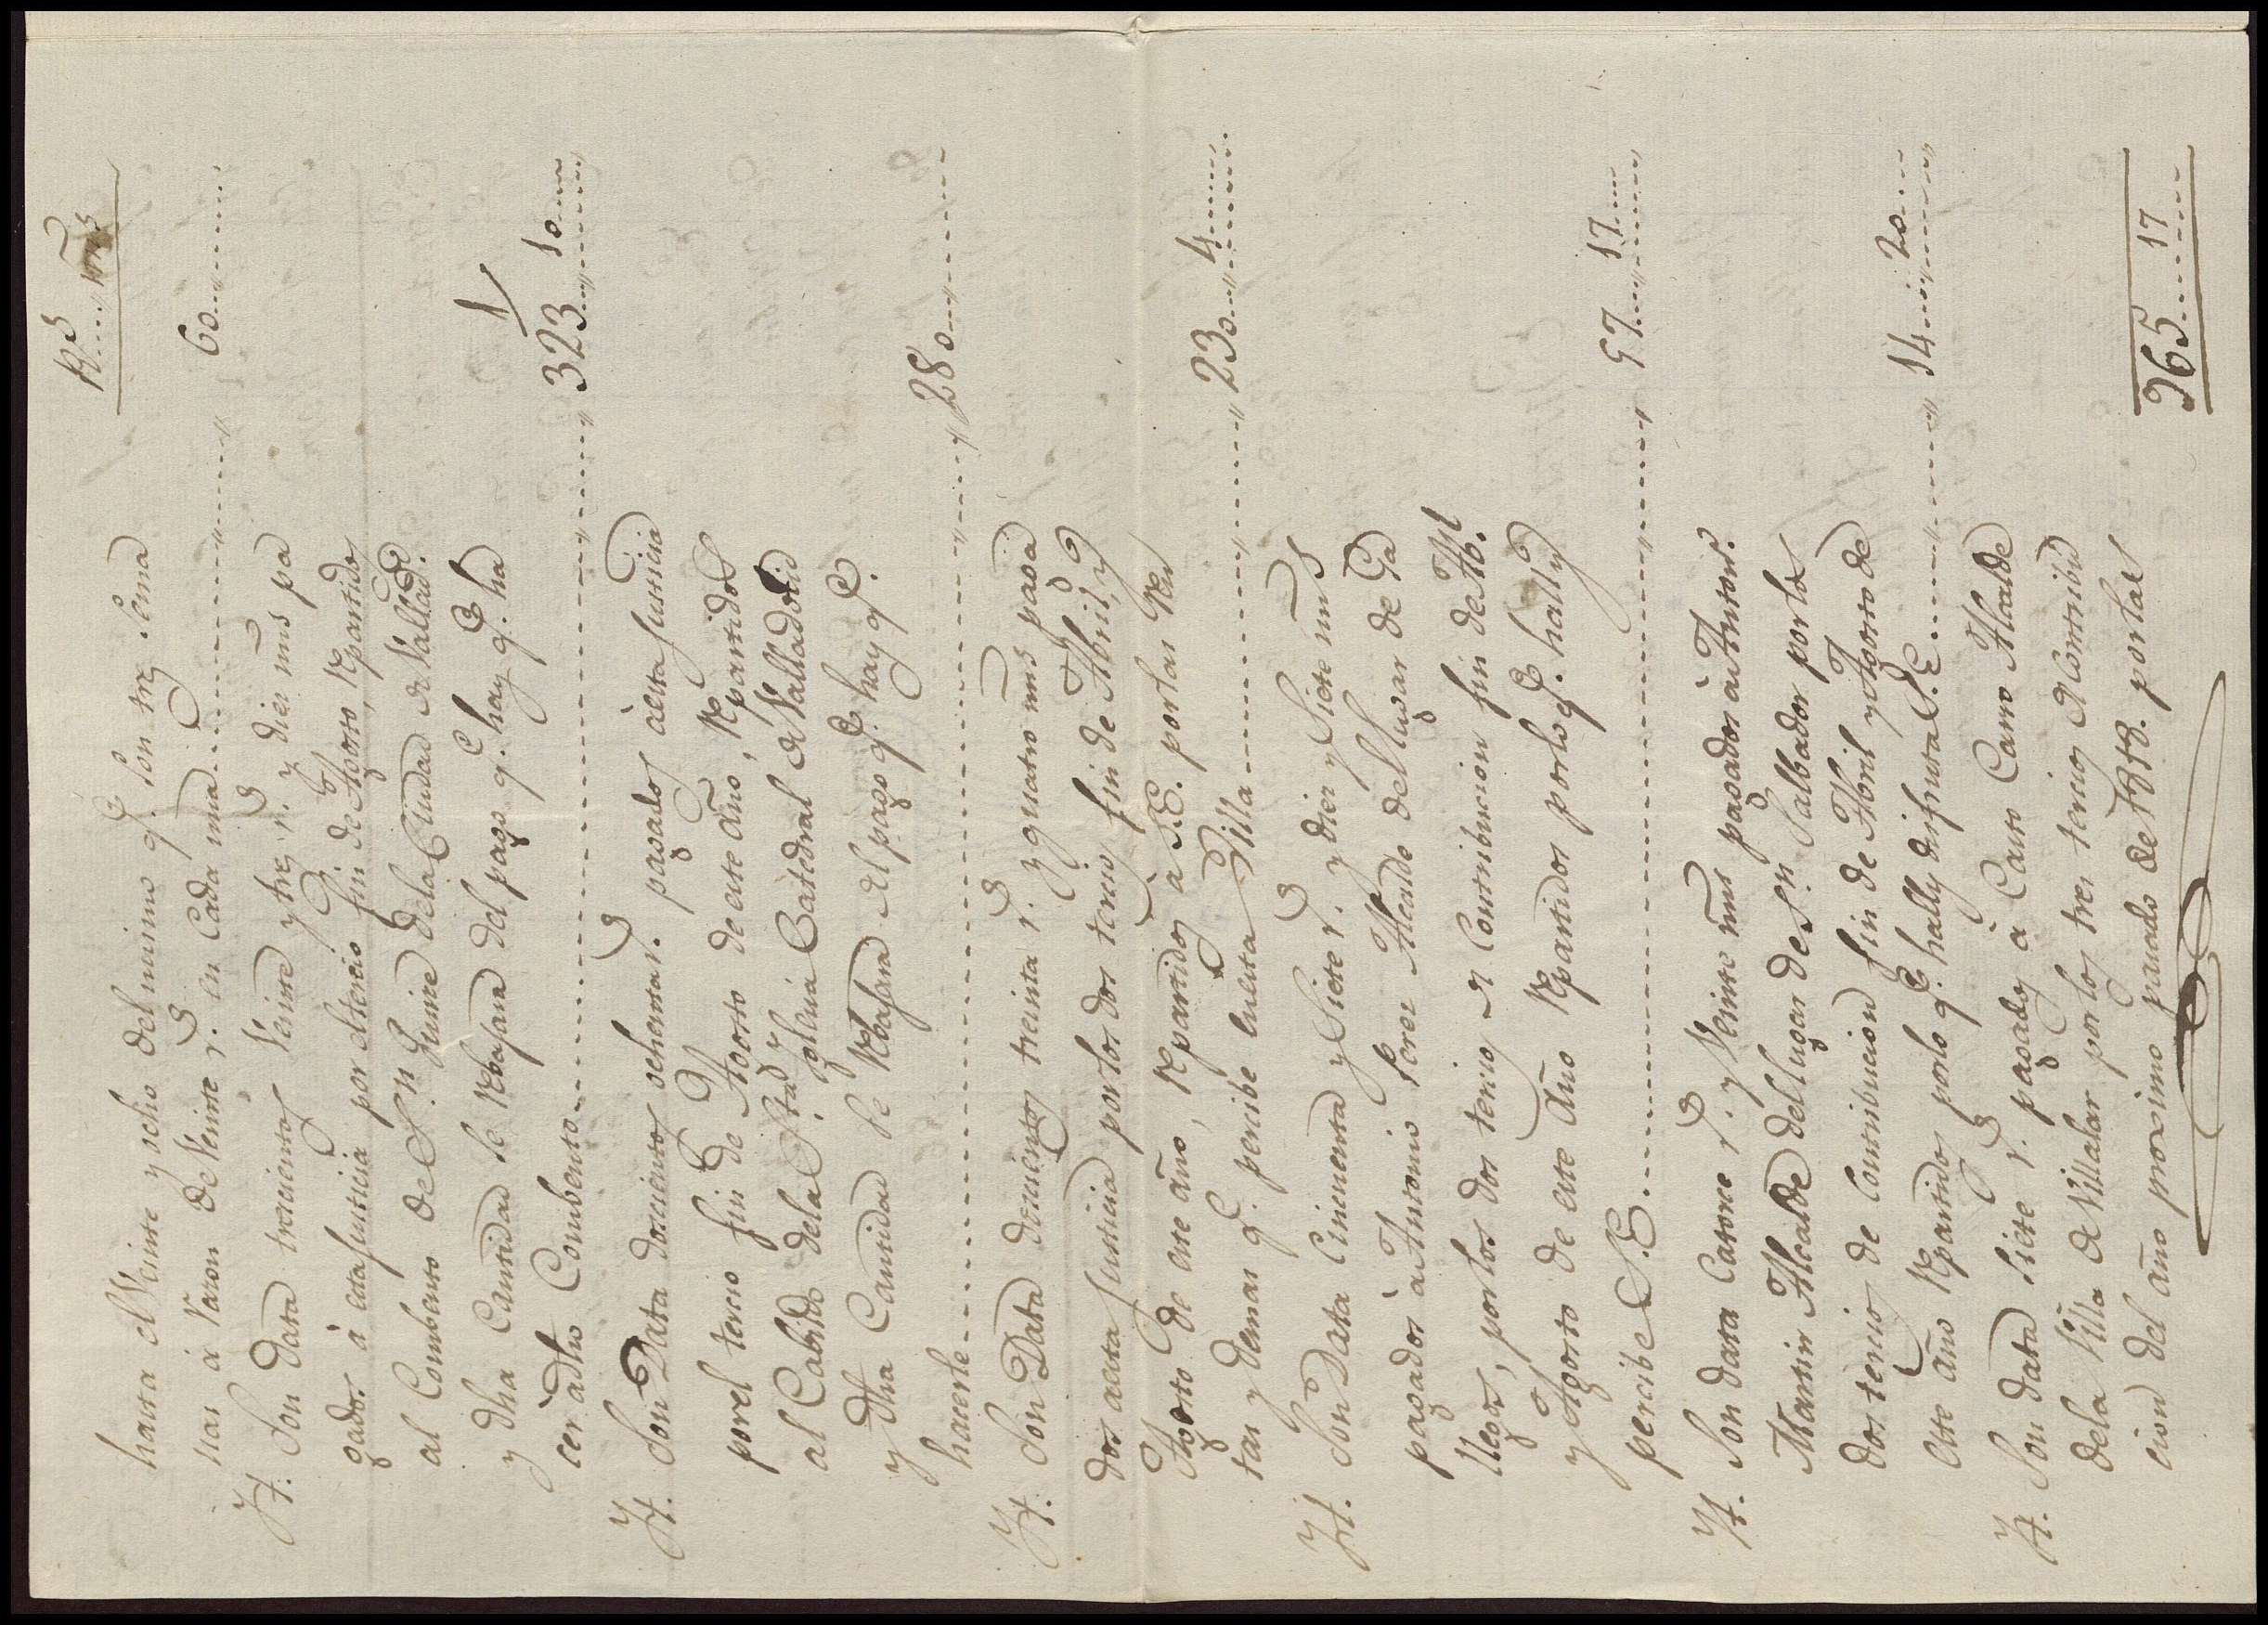 R.s .... mrs
hasta el Veinte y ocho del mismo q.e son tres sema
nas à razon de Veinte r.s en Cada una ........ 60 ......
Yt. Son Data trescientos Veinte y tres r.s y diez mrs pa
gados à esta Justicia por el tercio fin de Agosto, Repartidos
al Combento de S.n Quirce de la Ciudad de Vallad.d
y dha Cantidad se Rebajara del pago q.e hay q.e ha
cer adho Combento ........ 323 .... 10 ....
Yt. Son Data doscientos ochenta r.s pagados à esta Justicia
por el tercio fin de Agosto de este año, Repartidos
al Cabildo de la S.ta Yglesia Catedral de Valladolid
y dha Cantidad se Rebajara del pago q.e hay q.e
hacerle ........ 280 ........
Yt. Son Data doscientos treinta r.s y quatro mrs paga
dos a esta Justicia por los dos tercios fin de Abril, y
Agosto de este año, Repartidos à S.E. por las Ren
tas y demas q.e percibe en esta Villa ........ 230 .... 4 ....
Yt. Son Data Cincuenta y Siete r.s y diez y Siete mrs
pagados à Antonio Perez Alcalde del lugar de Ga
llegos, por los dos tercios de Contribucion fin de Ab.l
y Agosto de este Año Repartidos por lo q.e hally
percibe S.E. ........ 57 .... 17 ....
Yt. Son data Catorce r.s y Veinte mrs pagados à Anton.o
Martin Alcalde del lugar de S.n Salbador por los
dos tercios de Contribucion fin de Abril y Agosto de
este año Repartidos por lo q.e hally disfruta S.E. ........ 14 .... 20 ....
Yt. Son data Siete r.s pagados à Cauro Alcalde
de la Villa de Villalar por los tres tercios de Contribu
cion del año proximo pasado de 1818. por las
965 ...... 17